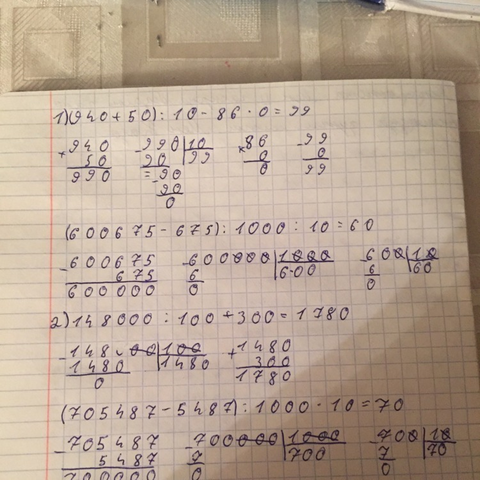 1)(940+50):10-86·0=99
+940 -990|10 ×86 -99
50 90 99 0 0
990 =90 0 99
90
0
(600675-675):1000:10=60
-600675 -600000|1000 -600|10
675 6 600 6 60
600000 0 0
2)148000:100+300=1780
-148000|100 +1480
1480 1480 300
0 1780
(705487-5487):1000·10=70
-705487 -700000|1000 -700|10
5487 7 700 7 70
700000 0 0